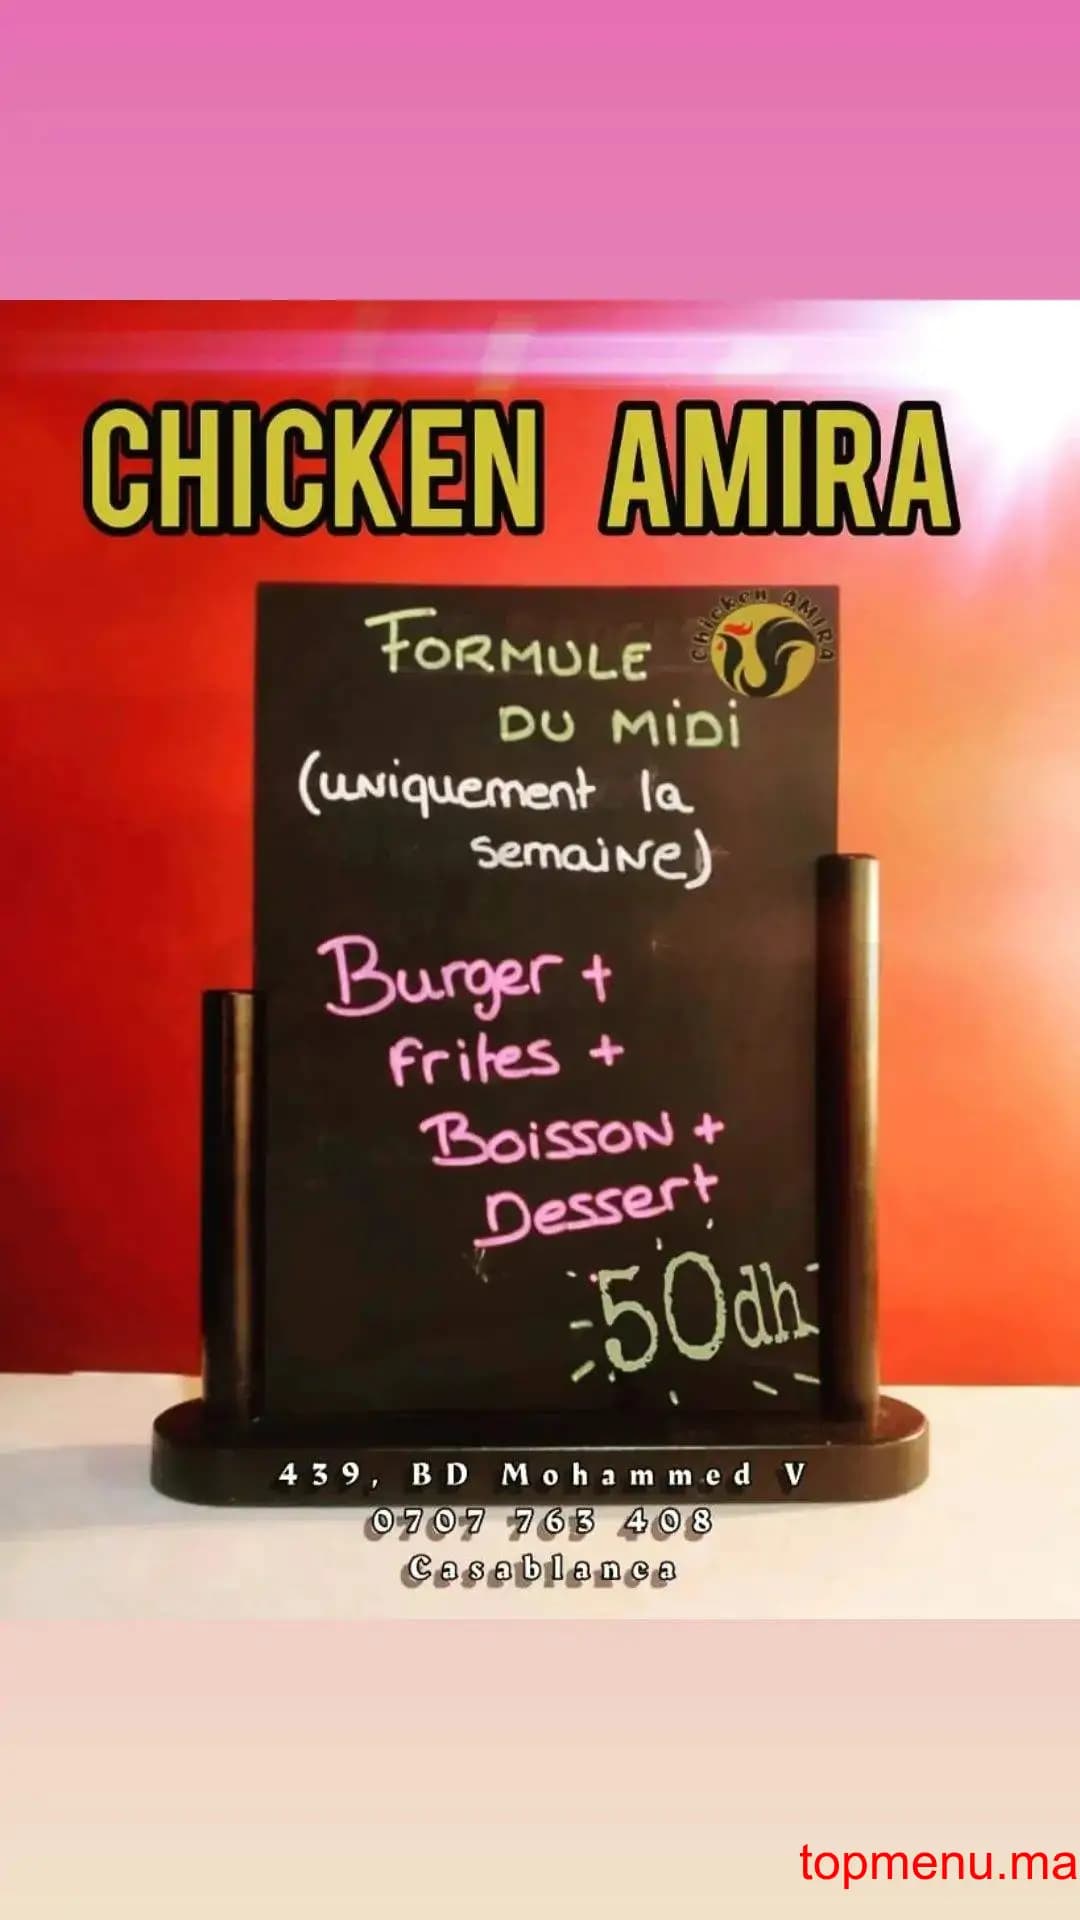 CHICKEN AMIRA
Chicken AMIRA
FORMULE
DU MiDi
(uniquement la
semaine)
Burger +
Frites +
Boisson +
Dessert
50dh
439, BD Mohammed V
0707 763 408
Casablanca
topmenu.ma